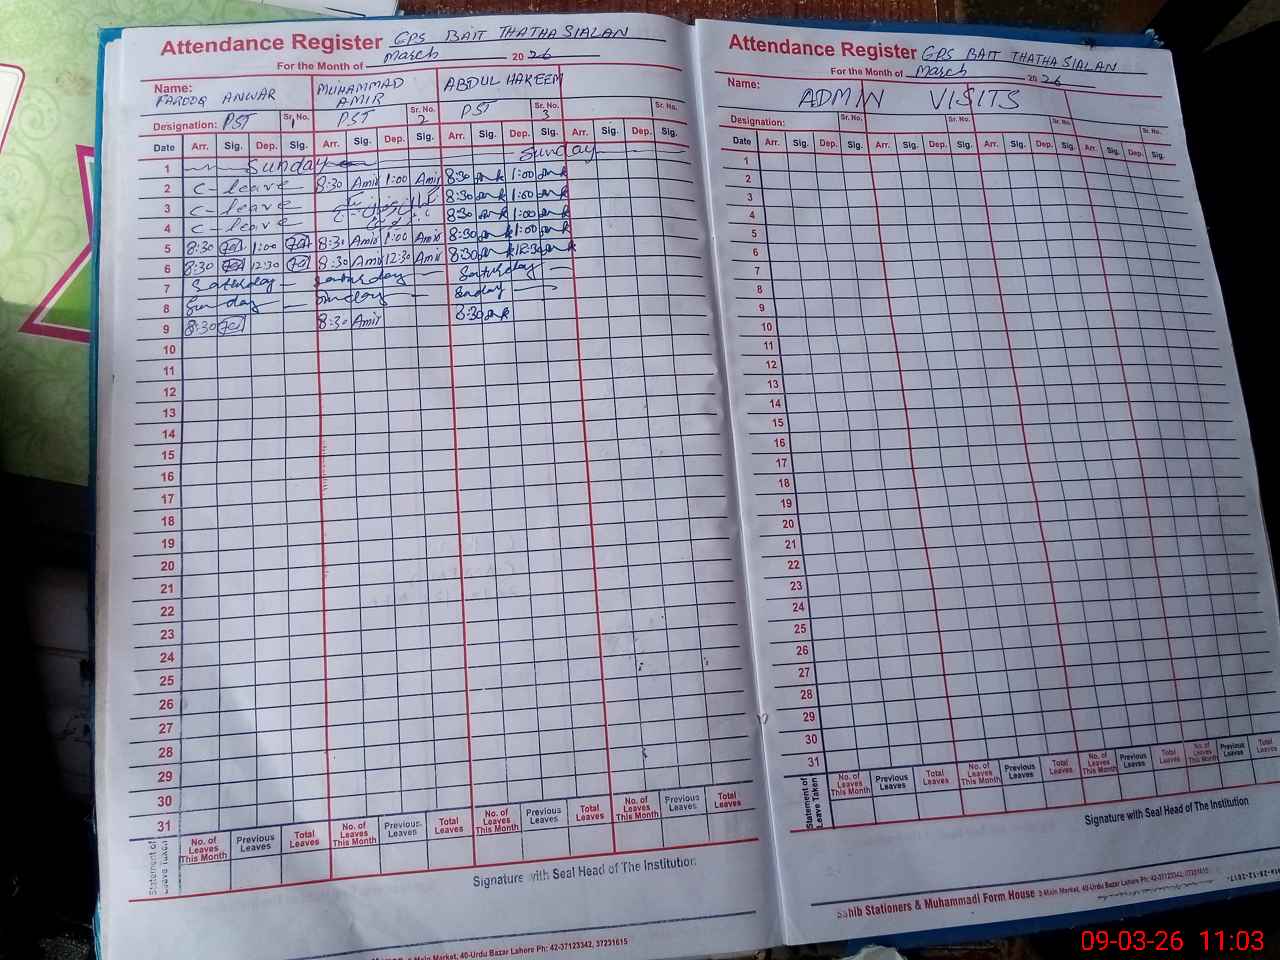 Attendance Register GPS BAIT THATHA SIALAN
For the Month of March 2026
Name: FAROOQ ANWAR MUHAMMAD AMIR ABDUL HAKEEM
Designation: PST Sr. No. 1 PST Sr. No. 2 PST Sr. No. 3 Sr. No.
Date Arr. Sig. Dep. Sig. Arr. Sig. Dep. Sig. Arr. Sig. Dep. Sig. Arr. Sig. Dep. Sig.
1 Sunday Sunday
2 C-leave 8:30 Amir 1:00 Amir 8:30 1:00
3 C-leave 8:30 1:00
4 C-leave 8:30 1:00
5 8:30 1:00 8:30 Amir 1:00 Amir 8:30 1:00
6 8:30 12:30 8:30 Amir 12:30 Amir 8:30 12:30
7 Saturday Saturday Saturday
8 Sunday Sunday Sunday
9 8:30 8:30 Amir 8:30
10
11
12
13
14
15
16
17
18
19
20
21
22
23
24
25
26
27
28
29
30
31
Statement of Leave Taken No. of Leaves This Month Previous Leaves Total Leaves No. of Leaves This Month Previous Leaves Total Leaves No. of Leaves This Month Previous Leaves Total Leaves No. of Leaves This Month Previous Leaves Total Leaves
Signature with Seal Head of The Institution
Main Market, 40-Urdu Bazar Lahore Ph: 42-37123342, 37231615
Attendance Register GPS BAIT THATHA SIALAN
For the Month of March 2026
Name: ADMIN VISITS
Designation: Sr. No. Sr. No. Sr. No. Sr. No.
Date Arr. Sig. Dep. Sig. Arr. Sig. Dep. Sig. Arr. Sig. Dep. Sig. Arr. Sig. Dep. Sig.
1
2
3
4
5
6
7
8
9
10
11
12
13
14
15
16
17
18
19
20
21
22
23
24
25
26
27
28
29
30
31
Statement of Leave Taken No. of Leaves This Month Previous Leaves Total Leaves No. of Leaves This Month Previous Leaves Total Leaves No. of Leaves This Month Previous Leaves Total Leaves No. of Leaves This Month Previous Leaves Total Leaves
Signature with Seal Head of The Institution
Sahib Stationers & Muhammadi Form House 2-Main Market, 40-Urdu Bazar Lahore Ph: 42-37123342, 37231615
09-03-26 11:03